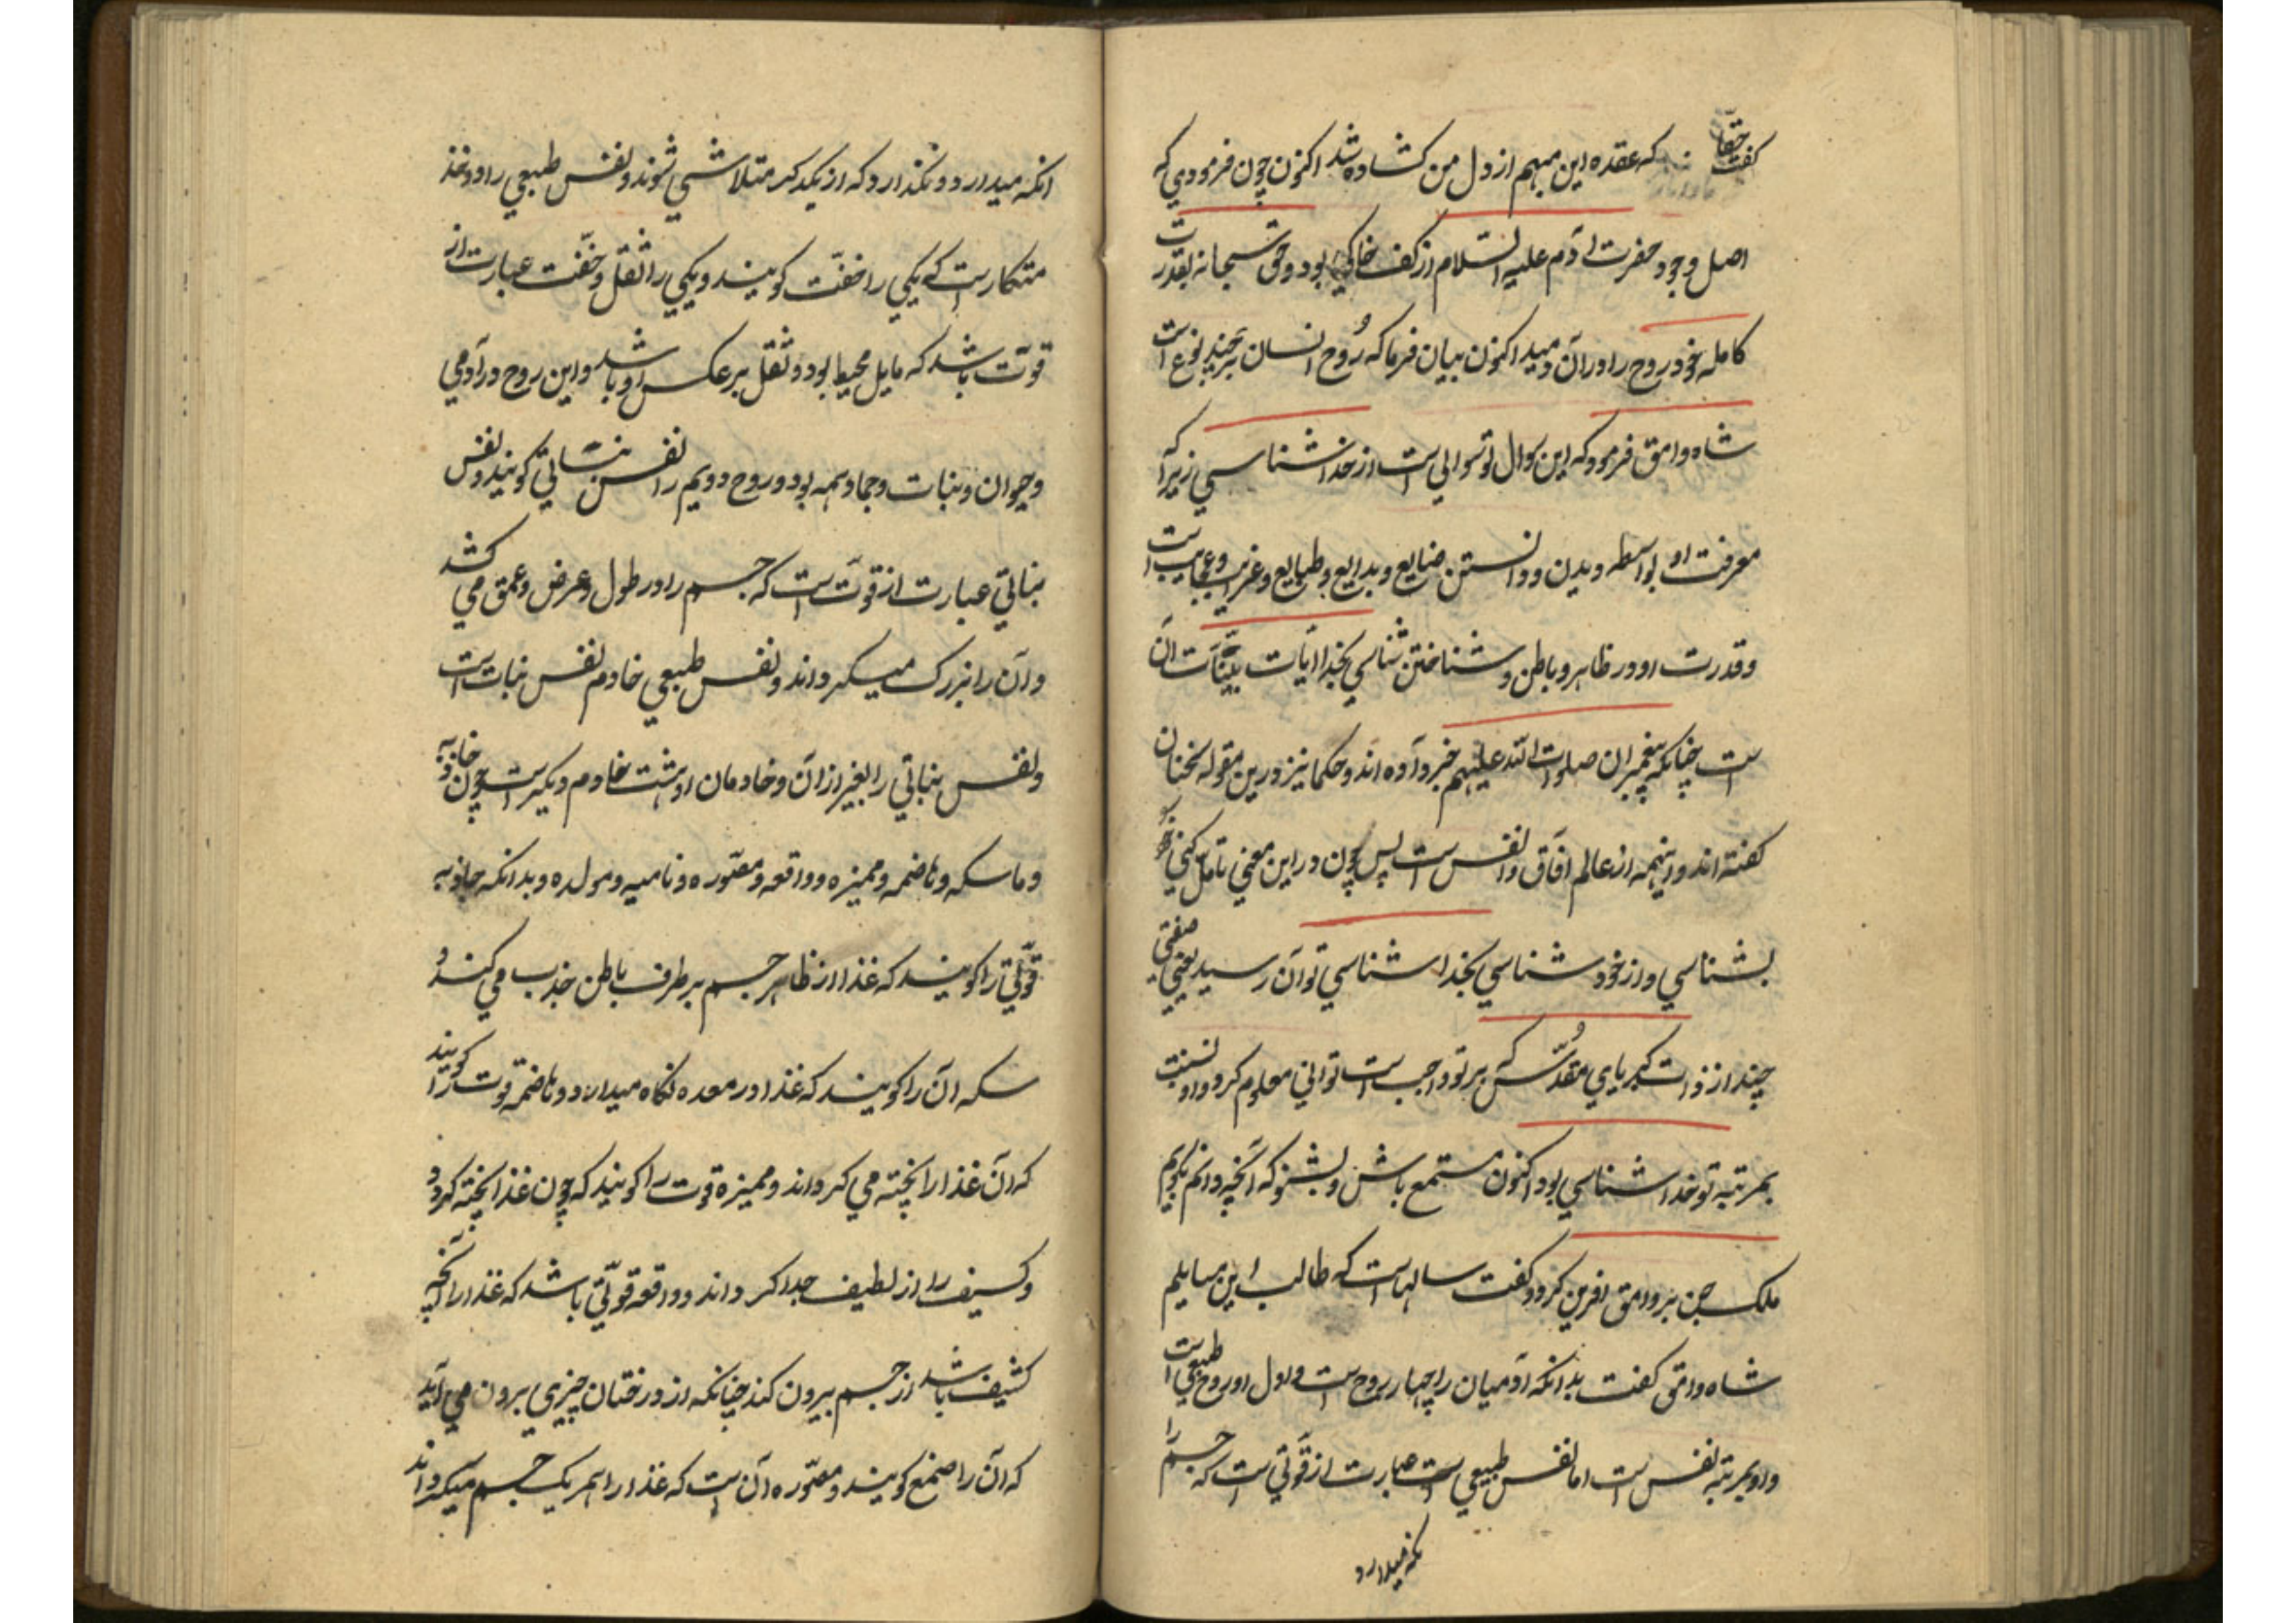 گفت حقا که عقده این مبهم از دل من کشاده شد اکنون چون فرمودي که
اصل وجود حضرت آدم علیه السلام از کف خاکي بود و حق سبحانه بقدرت
کامله خود روح را در آن دمید اکنون بیان فرما که رُوح انسان بر چند نوع است
شاه وامق فرمود که این سوال تو سوالي است از خداشناسي زیرا که
معرفت او بواسطه دیدن و دانستن صنایع و بدایع و طبایع و غرایب و عجایب است
و قدرت او در ظاهر و باطن و شناختن شناسي بخدا آیات بیّنات آن
است چنانکه پیغمبران صلوات الله علیهم خبر داده اند و حکما نیز درین مقوله سخنان
کفته اند و اینهمه از عالم آفاق و انفس است پس چون در این معني تامل کني
بشناسي و از خود شناسي بخدا شناسي توان رسید یعني صفتي
چند از ذات کبریاي مقدّسش که بر تو واجب است تواني معلوم کرد و او نسبت
بمرتبه تو خداشناسي بود اکنون مستمع باش و بشنو که آنچه دانم بکویم
ملک جن بر وامق آفرین کرد و کفت سالهاست که طالب این مسایلیم
شاه وامق کفت بدانکه آدمیان را چهار روح است و اول او روح طبیعي است
و او بمرتبه نفس است اما نفس طبیعي است عبارت از قوّتي است که جسم را
نکه میدارد
انکه میدارد و نکذارد که از یکدکر متلاشي شوند و نفس طبیعي را دو خذ
متکار است که یکي را خفّت کویند و یکي را ثقل و خفّت عبارت از
قوّت باشد که مایل محیط بود و ثقل بر عکس او باشد و این روح در آدمي
و حیوان و نبات و جماد همه بود و روح دویم را نفس نباتي کویند و نفس
نباتي عبارت از قوّت است که جسم را در طول و عرض و عمق مي کشد
و آن را بزرک میکرداند و نفس طبیعي خادم نفس نبات است
و نفس نباتي را بغیر از آن و خادمان او هشت خادم دیکر است چون جاذبه
و ماسکه و هاضمه و ممیزه و دافعه و مصّوره و نامیه و مولده و بدانکه جاذبه
قوّتي را کویند که غذا از ظاهر جسم بر طرف باطن جذب مي کند و
سکه آن را کویند که غذا در معده نکاه میدارد و هاضمه قوت را کویند
که آن غذا را پخته مي کرداند و ممیزه قوت را کویند که چون غذا پخته کردد
و کسیف را از لطیف جدا کرداند و دافعه قوّتي باشد که غذا را آنچه
کثیف باشد از جسم بیرون کند چنانکه از درختان چیزي برون مي آید
که آن را صمغ کویند و مصّوره آن است که غذا را همریک جسم میکرداند